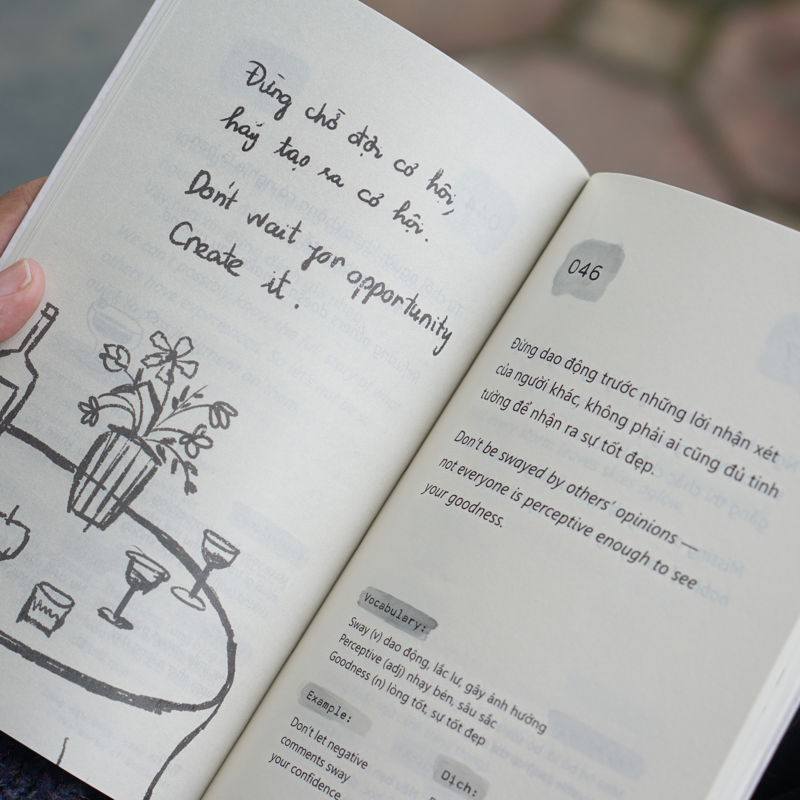 Đừng chờ đợi cơ hội,
hãy tạo ra cơ hội.
Don't wait for opportunity
Create it.
046
Đừng dao động trước những lời nhận xét
của người khác, không phải ai cũng đủ tinh
tường để nhận ra sự tốt đẹp.
Don't be swayed by others' opinions —
not everyone is perceptive enough to see
your goodness.
Vocabulary:
Sway (v) dao động, lắc lư, gây ảnh hưởng
Perceptive (adj) nhạy bén, sâu sắc
Goodness (n) lòng tốt, sự tốt đẹp
Example:
Don't let negative
comments sway
your confidence
Dịch: